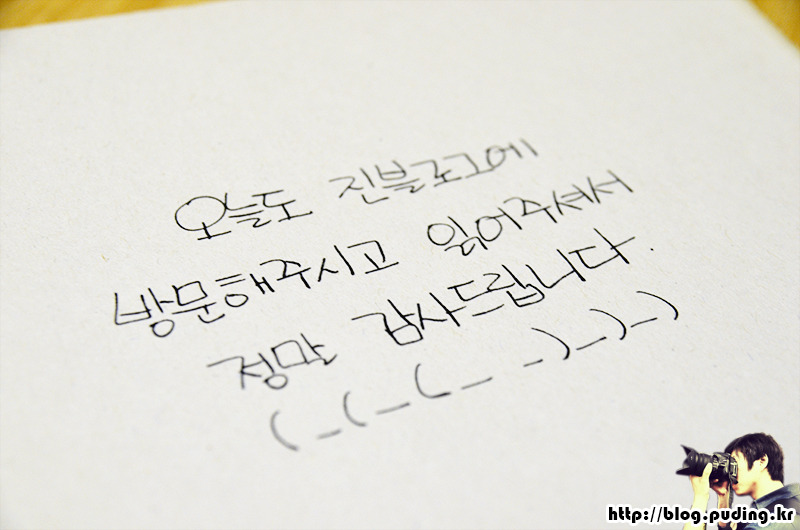 오늘도 진블로그에
방문해주시고 읽어주셔서
정말 감사드립니다.
(_(_(_ _)_)_)
http://blog.puding.kr